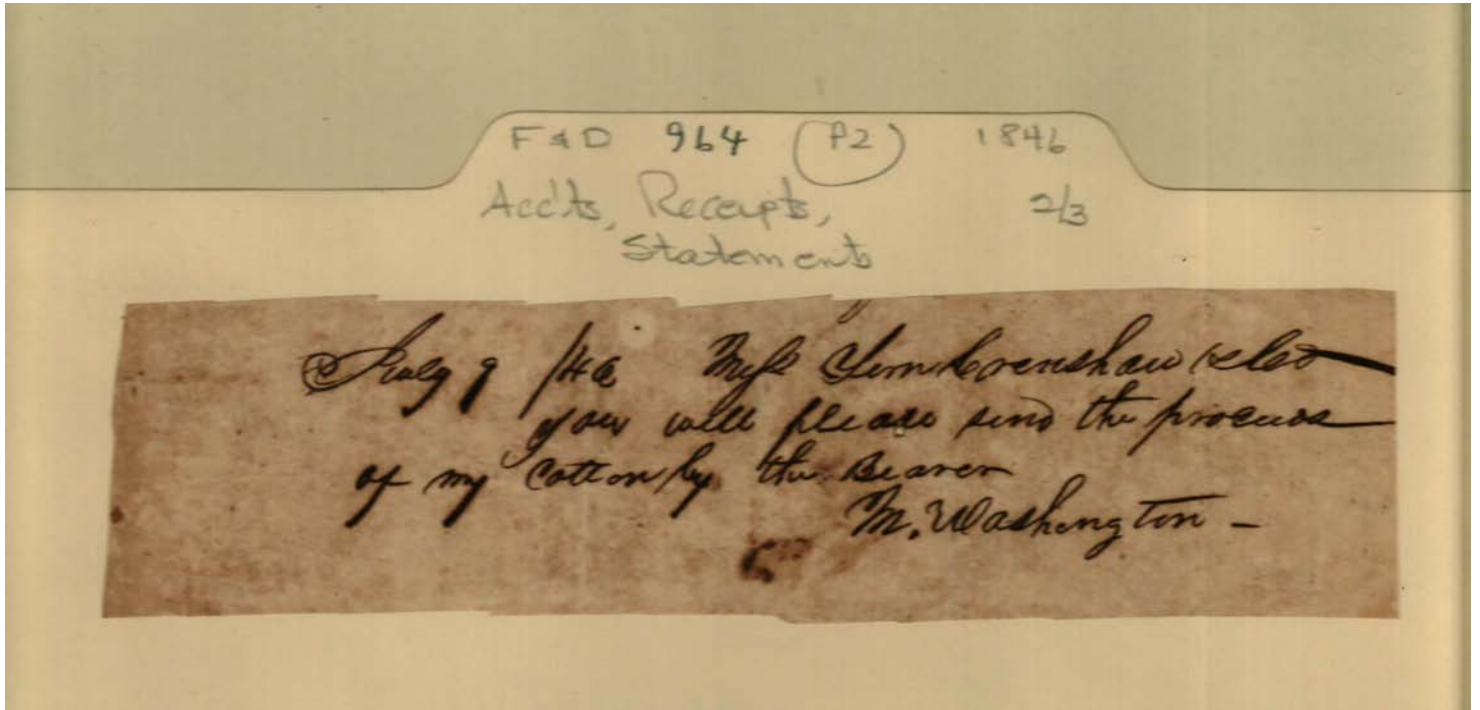 F & D 964 (P2) 1846
Acc'ts, Receipts, 2/3
Statements
July 9 /46 Crenshaw & Co
you will please send the proceeds
of my Cotton by the Bearer
M. Washington -